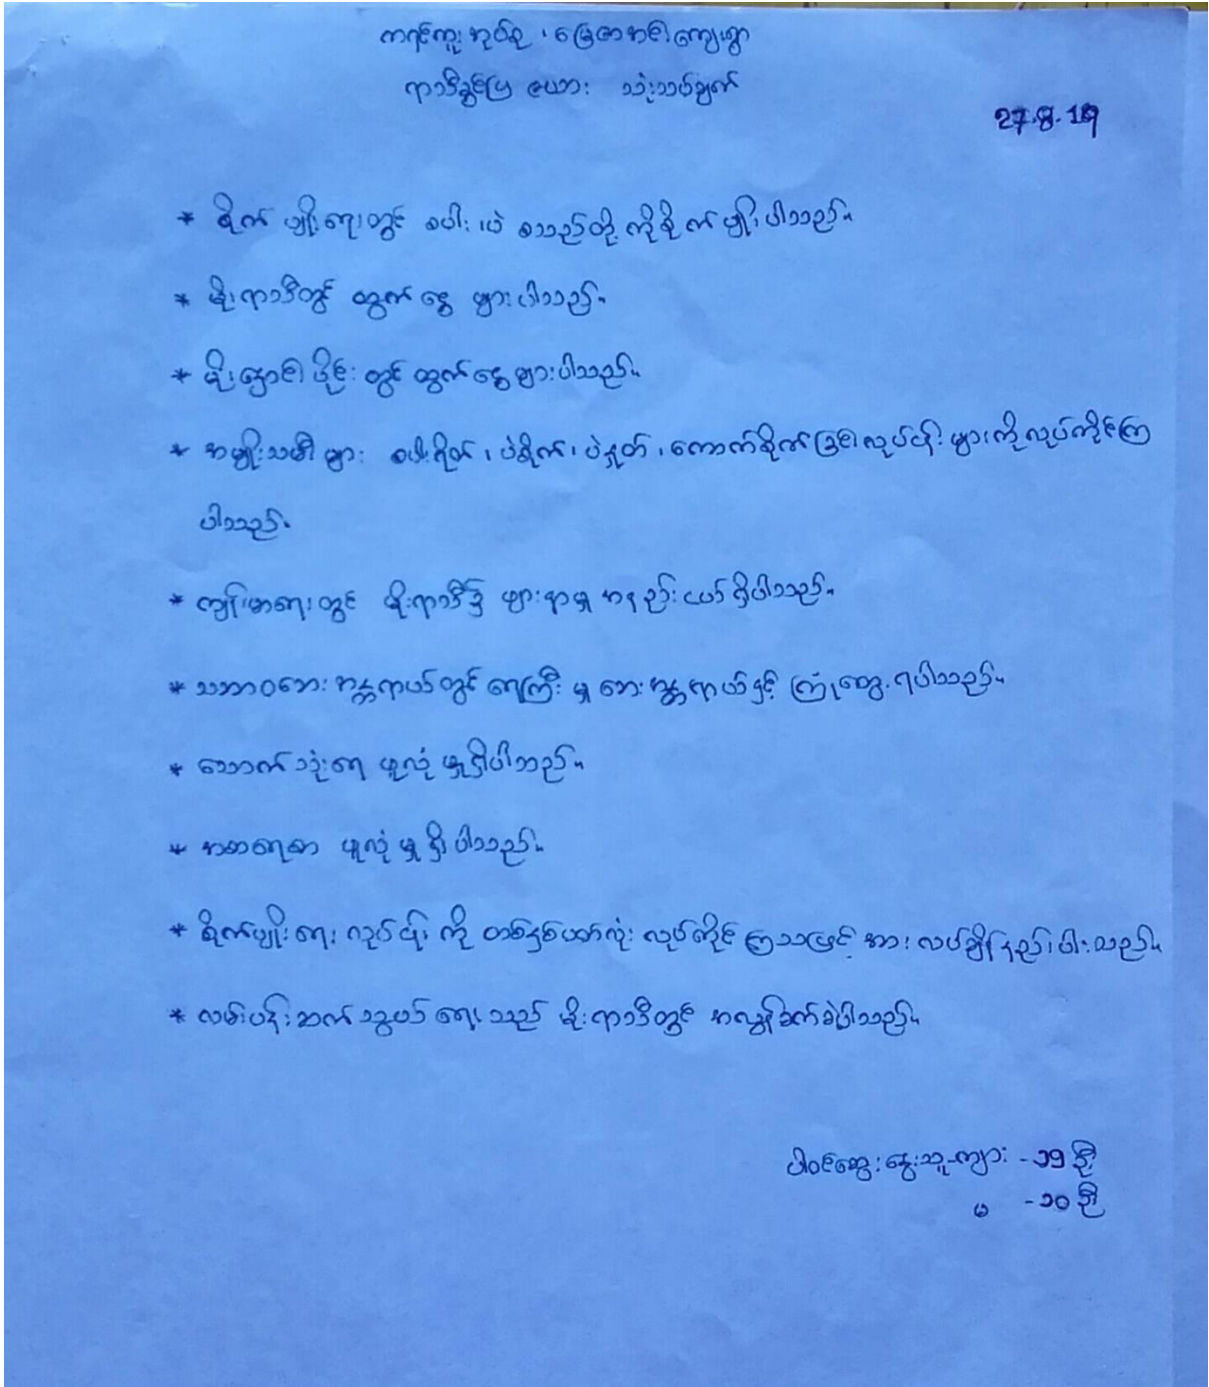 ကရင်ကူးအုပ်စု ၊ မြေဇာအင်းကျေးရွာ
ရာသီခွင်ပြ ဇယား သုံးသပ်ချက်
27.8.19
* စိုက် ပျိုးရေးတွင် စပါး ၊ပဲ စသည်တို့ ကိုစိုက် ပျိုးပါသည်။
* မိုးရာသီတွင် ထွက်ငွေ များပါသည်။
* မိုးနှောင်း ပိုင်း တွင် ထွက်ငွေများပါသည်။
* အမျိုးသမီး များ စပါးရိတ် ၊ ပဲစိုက် ၊ ပဲနှုတ် ၊ ကောက်စိုက်ခြင်းလုပ်ငန်းများကို လုပ်ကိုင်ကြ
ပါသည်။
* ကျန်းမာရေးတွင် မိုးရာသီ၌ ဖျားနာမှု အနည်းငယ် ရှိပါသည်။
* သဘာဝဘေး အန္တရာယ်တွင် ရေကြီး မှု ဘေးအန္တရာယ်နှင့် ကြုံတွေ့ ရပါသည်။
* သောက်သုံးရေ ဖူလုံ မှုရှိပါသည်။
* အစားရေစာ ဖူလုံ မှု ရှိ ပါသည်။
* စိုက်ပျိုးရေး လုပ်ငန်း ကို တစ်နှစ်ပတ်လုံး လုပ်ကိုင် ကြသဖြင့် အား လပ်ချိန်နည်းပါးသည်။
* လမ်းပန်းဆက်သွယ် ရေး သည် မိုးရာသီတွင် အလွန်ခက်ခဲပါသည်။
ပါဝင်ဆွေးနွေးသူ-ကျား - ၁၅ ဦး
မ - ၁၀ ဦး